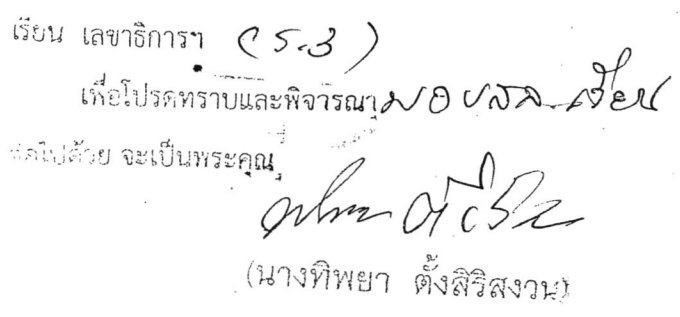 เรียน เลขาธิการฯ (ร.3)
เพื่อโปรดทราบและพิจารณา
ต่อไปด้วย จะเป็นพระคุณ
(นางทิพยา ตั้งสิริสงวน)